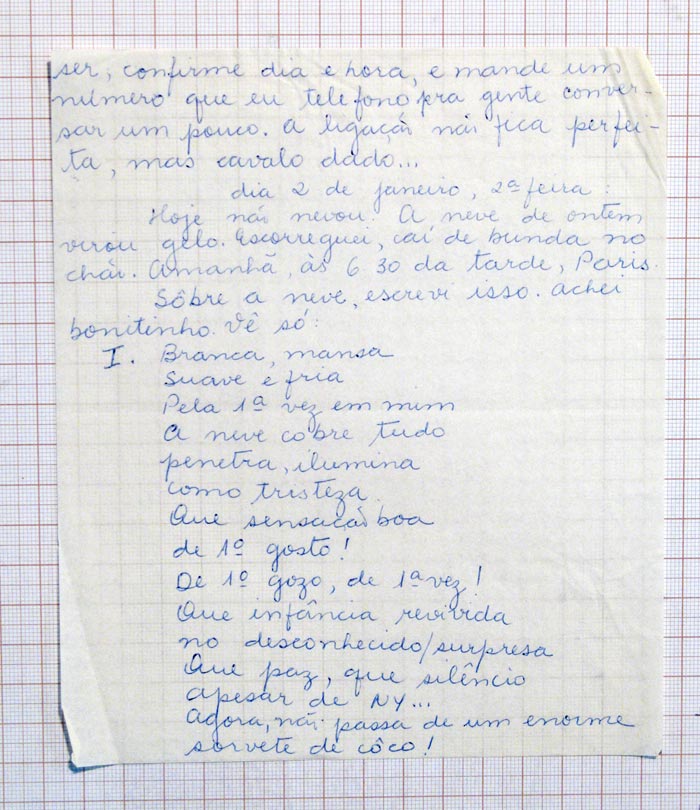 ser, confirme dia e hora, e mande um
número que eu telefono pra gente conver-
sar um pouco. A ligação não fica perfei-
ta, mas cavalo dado...
dia 2 de janeiro, 2ª feira:
Hoje não nevou. A neve de ontem
virou gelo. Escorreguei, caí de bunda no
chão. Amanhã, às 6 30 da tarde, Paris.
Sôbre a neve, escrevi isso. Achei
bonitinho. Vê só:
I. Branca, mansa
Suave e fria
Pela 1ª vez em mim
A neve cobre tudo
penetra, ilumina
como tristeza.
Que sensação boa
de 1º gosto!
De 1º gozo, de 1ª vez!
Que infância revivida
no desconhecido/surpresa
Que paz, que silêncio
apesar de NY...
Agora, não passa de um enorme
sorvete de côco!